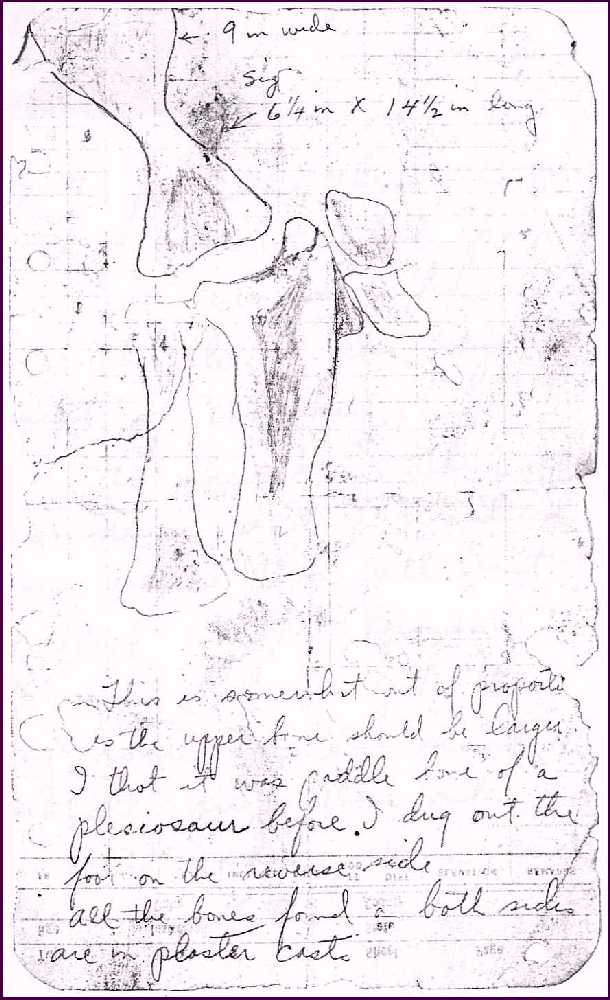 9 in wide
Sig
6 1/4 in X 14 1/2 in long
This is somewhat out of proporti
as the upper bone should be larger
I thot it was paddle bone of a
plesiosaur before. I dug out the
foot on the reverse side
all the bones found on both sides
are in plaster casts